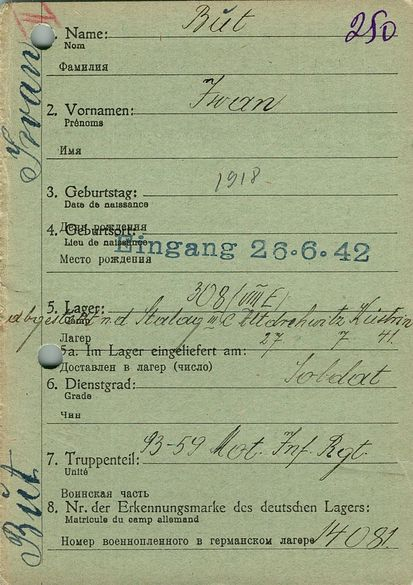 250
1. Name: Bŭt
Nom
Фамилия
2. Vornamen: Iwan
Prénoms
Имя
3. Geburtstag: 1918
Date de naissance
День рождения
4. Geburtsort:
Lieu de naissance
Eingang 26.6.42
Место рождения
5. Lager: 308 (VIII E)
Camp
abgestellt nd Stalag III C Altdrewitz Küstrin
Лагер
5a. Im Lager eingeliefert am: 27 7 41
Доставлен в лагер (число)
6. Dienstgrad: Soldat
Grade
Чин
7. Truppenteil: 93-59 Mot. Inf. Rgt
Unité
Воинская часть
8. Nr. der Erkennungsmarke des deutschen Lagers:
Matricule du camp allemand
Номер военнопленного в германском лагере 14081
Bŭt Ivan